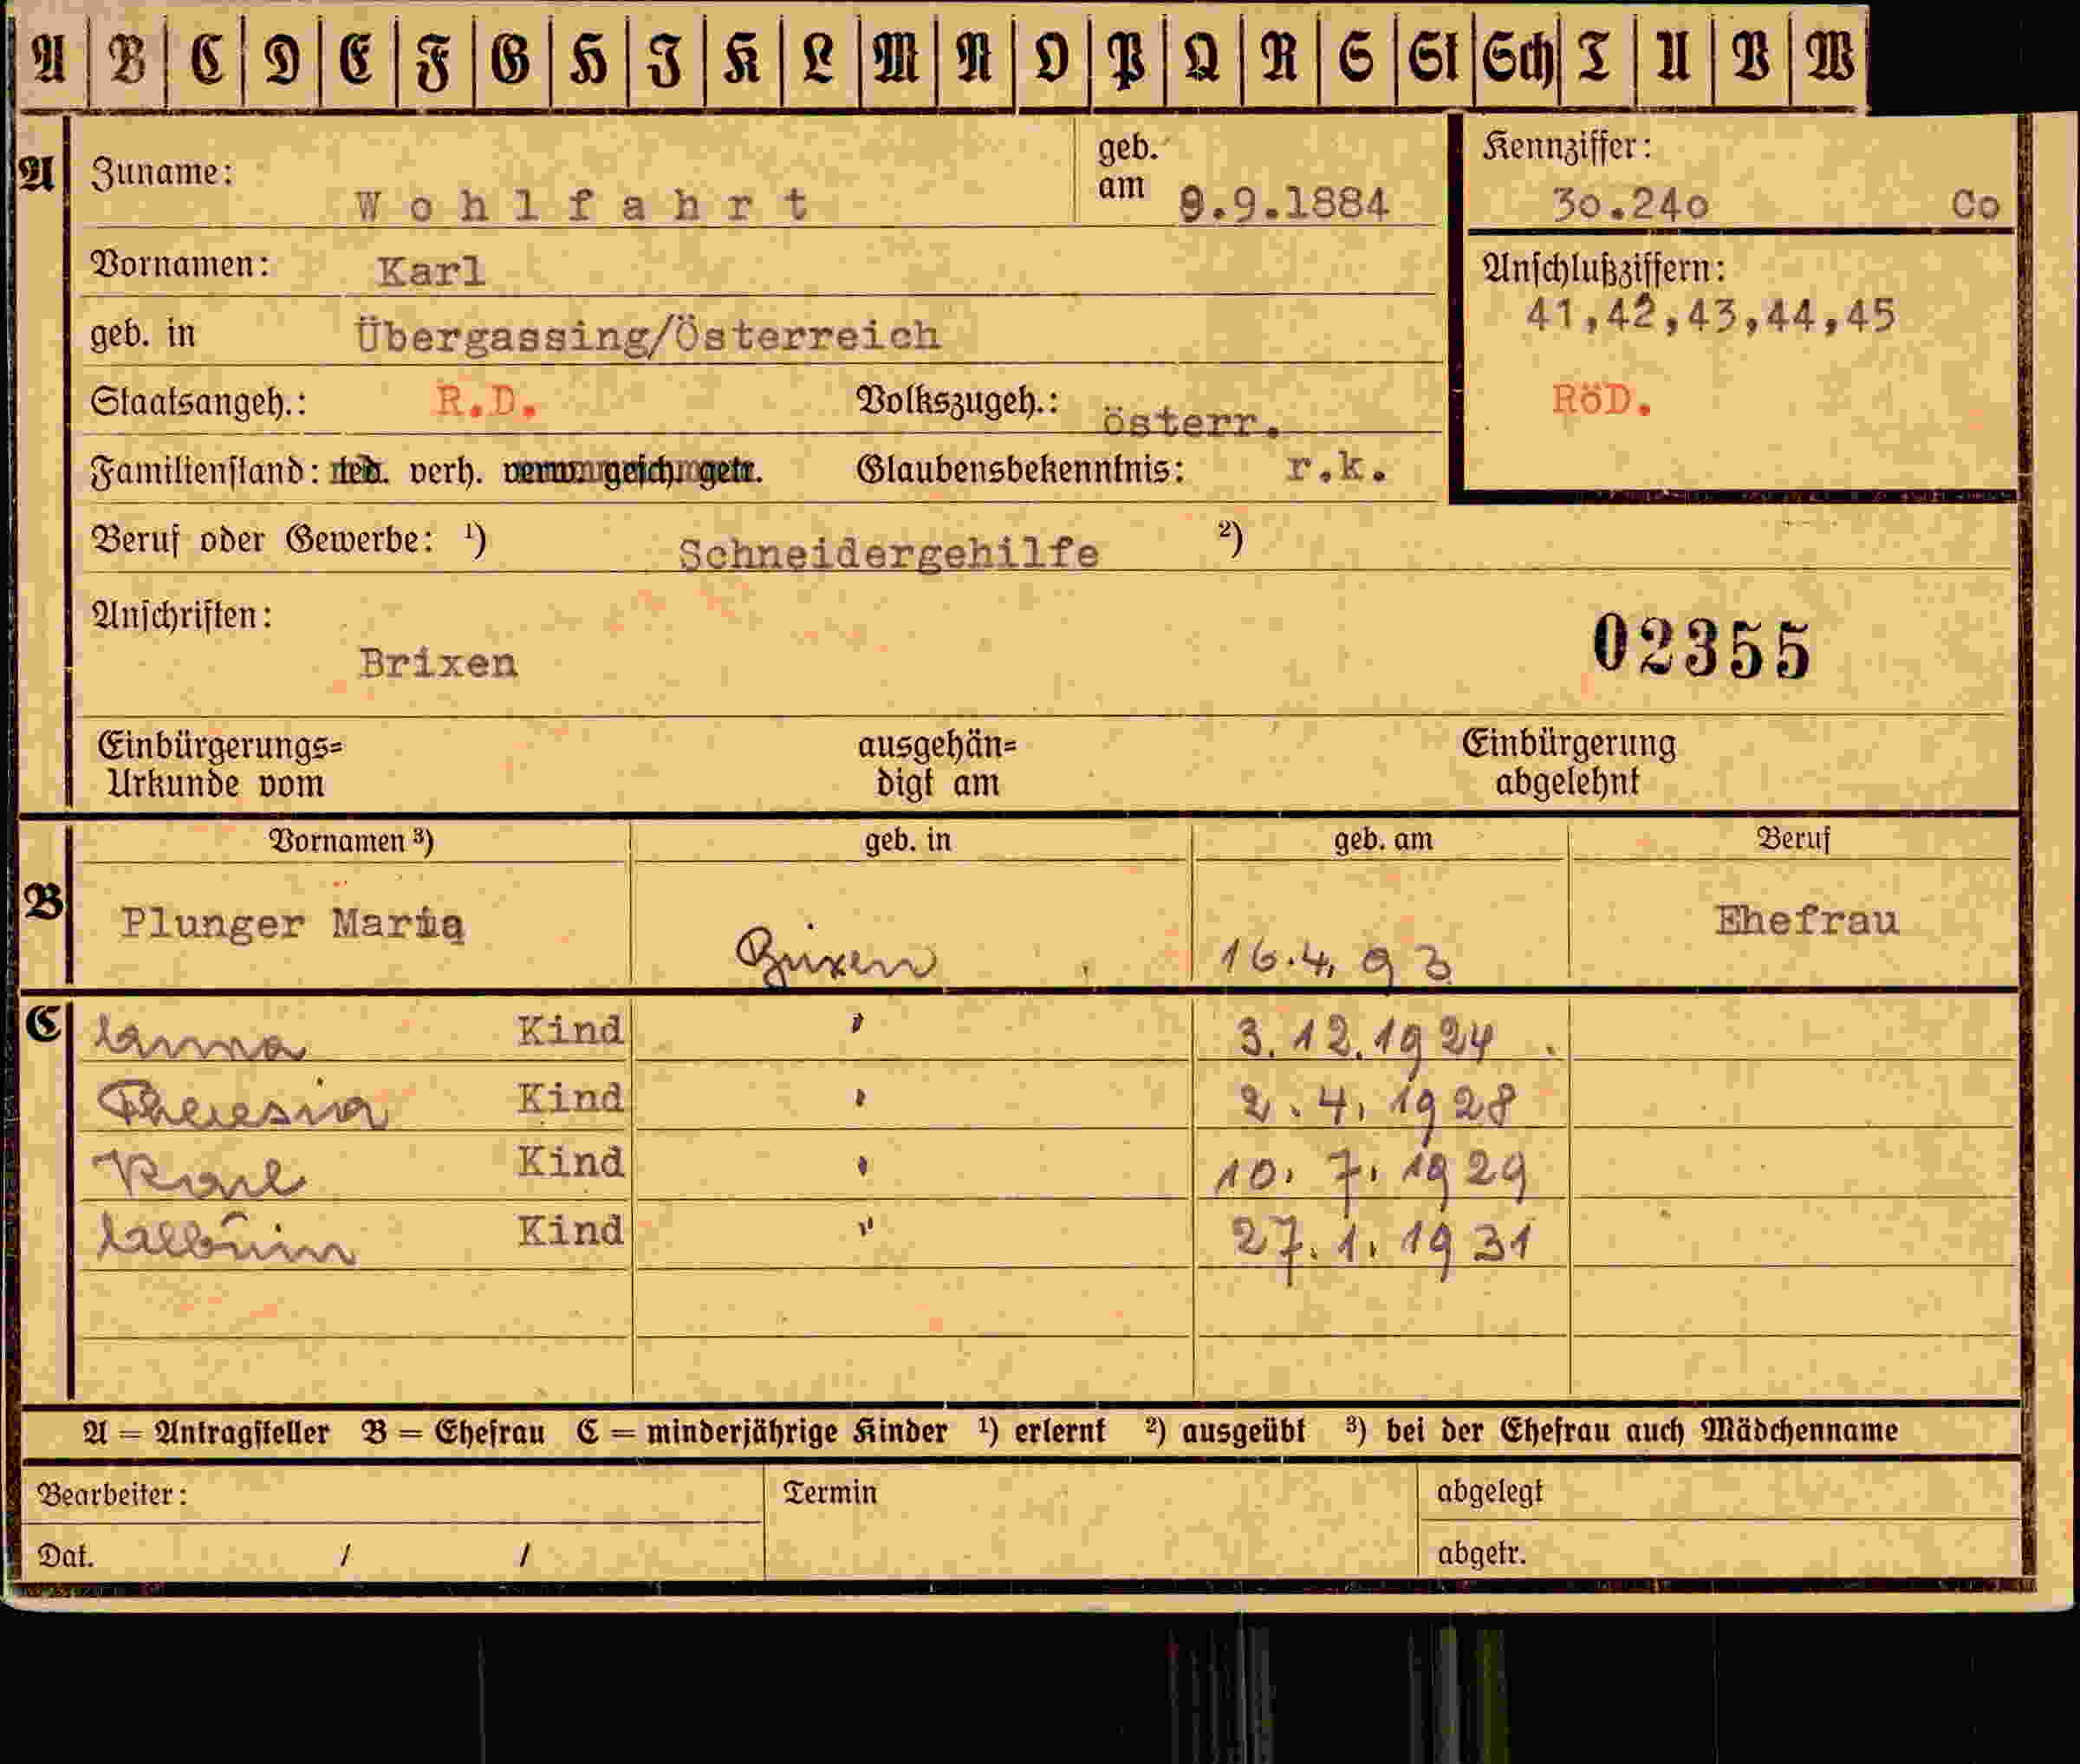 A B C D E F G H J K L M N O P Q R S St Sch T U V W
A Zuname: Wohlfahrt geb. am 9.9.1884 Kennziffer: 30.240 Co
Vornamen: Karl Anschlußziffern:
41,42,43,44,45
geb. in Übergassing/Österreich
Staatsangeh.: R.D. Volkszugeh.: österr. RöD.
Familienstand: led. verh. verw. gesch. getr. Glaubensbekenntnis: r.k.
Beruf oder Gewerbe: ¹) Schneidergehilfe ²)
Anschriften:
Brixen 02355
Einbürgerungs= ausgehän= Einbürgerung
Urkunde vom digt am abgelehnt
Vornamen ³) geb. in geb. am Beruf
B Plunger Maria Brixen 16.4.93 Ehefrau
C Anna Kind " 3.12.1924.
Theresia Kind " 2.4.1928
Karl Kind " 10.7.1929
Albuin Kind " 27.1.1931
A = Antragsteller B = Ehefrau C = minderjährige Kinder ¹) erlernt ²) ausgeübt ³) bei der Ehefrau auch Mädchenname
Bearbeiter: Termin abgelegt
Dat. / / abgetr.